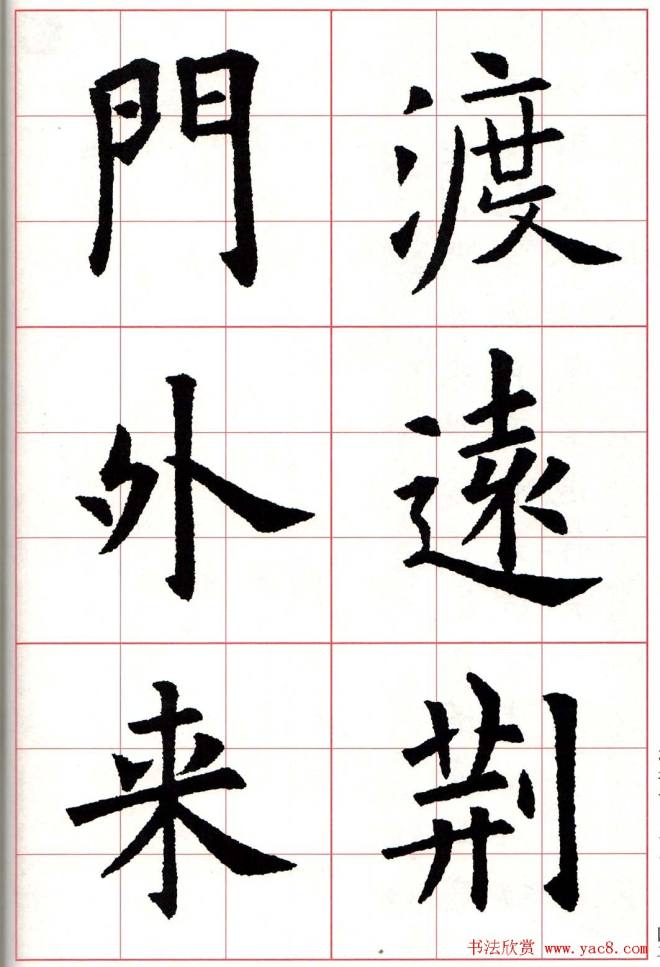 渡遠荊
門外来
书法欣赏 www.yac8.com